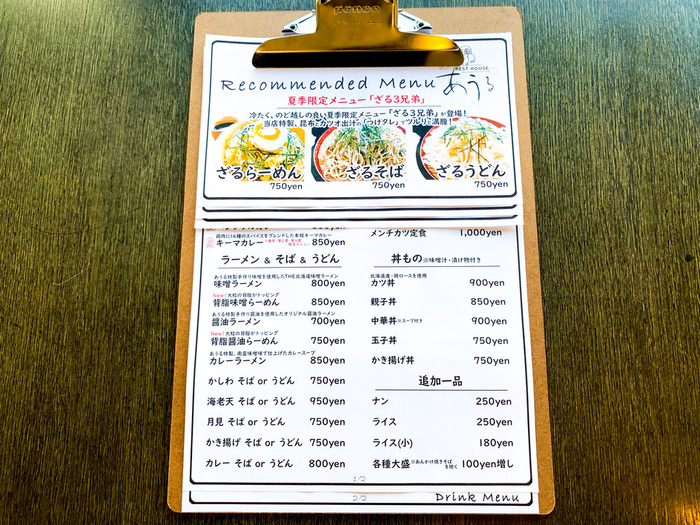 penco
REST HOUSE
Recommended Menu あうる
夏季限定メニュー「ざる3兄弟」
冷たく、のど越しの良い夏季限定メニュー「ざる3兄弟」が登場!
当店特製、昆布とカツオ出汁の「つけタレ」でツルリと満腹!
ざるらーめん ざるそば ざるうどん
750yen 750yen 750yen
鶏肉に14種のスパイスをブレンドした本格キーマカレー
キーマカレー 850yen
ラーメン & そば & うどん
あうる特製手作り味噌を使用したTHE北海道味噌ラーメン
味噌ラーメン 800yen
New! 大粒の背脂がトッピング
背脂味噌らーめん 850yen
あうる特製手作り醤油を使用したオリジナル醤油ラーメン
醤油ラーメン 700yen
New! 大粒の背脂がトッピング
背脂醤油らーめん 750yen
あうる特製、南蛮味噌味で仕上げたカレースープ
カレーラーメン 850yen
かしわ そば or うどん 750yen
海老天 そば or うどん 950yen
月見 そば or うどん 750yen
かき揚げ そば or うどん 750yen
カレー そば or うどん 800yen
メンチカツ定食 1,000yen
丼もの ※味噌汁・漬け物付き
北海道産・豚ロースを使用
カツ丼 900yen
親子丼 850yen
中華丼 ※スープ付き 900yen
玉子丼 750yen
かき揚げ丼 750yen
追加一品
ナン 250yen
ライス 250yen
ライス(小) 180yen
各種大盛 ※あんかけ焼きそばを除く 100yen増し
1/2
2/2
Drink Menu